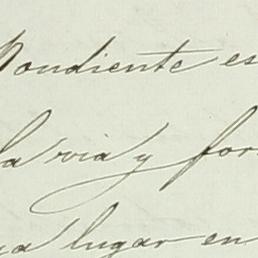 pondiente es
la via y for
ya lugar en